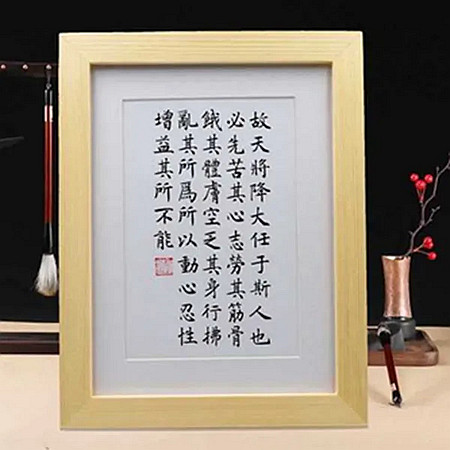 故天將降大任于斯人也
必先苦其心志勞其筋骨
餓其體膚空乏其身行拂
亂其所爲所以動心忍性
增益其所不能